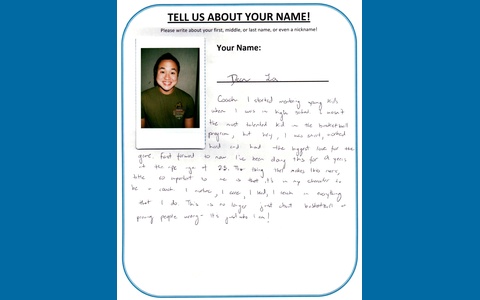 TELL US ABOUT YOUR NAME!
Please write about your first, middle, or last name, or even a nickname!
Your Name:
Coach. I started mentoring young kids
when I was in high school. I wasn't
the most talented kid in the basketball
program, but hey, I was short, worked
hard and had the biggest love for the
game. Fast forward to now I've been doing this for years
at the age of 22. The thing that makes this name,
title so important to me is that it's in my character to
be a coach. I nurture, I care, I lead, I teach in everything
that I do. This is no longer just about basketball or
young people it's just who I am!